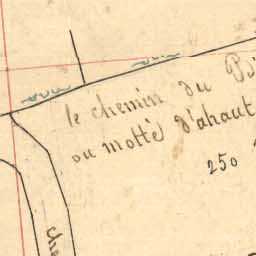 le chemin du
ou motte d'ahaut
250
che